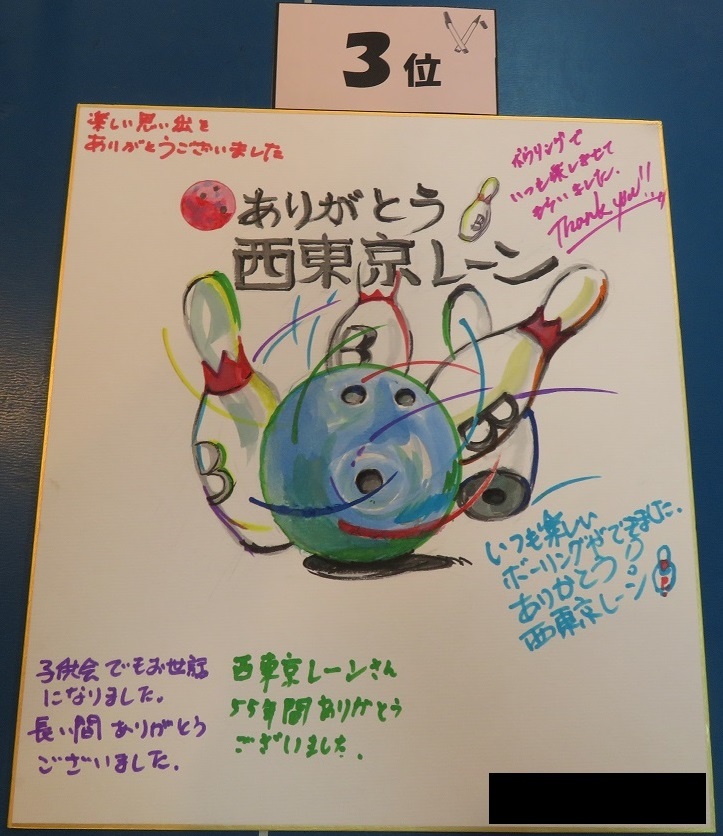 3位
楽しい思い出を
ありがとうございました
ボウリングで
いつも楽しませて
もらいました.
Thank you!!
ありがとう
西東京レーン
B
B
B
B
いつも楽しい
ボーリングができました.
ありがとう!!
西東京レーン
子供会でもお世話
になりました。
長い間ありがとう
ございました.
西東京レーンさん
55年間ありがとう
ございました.